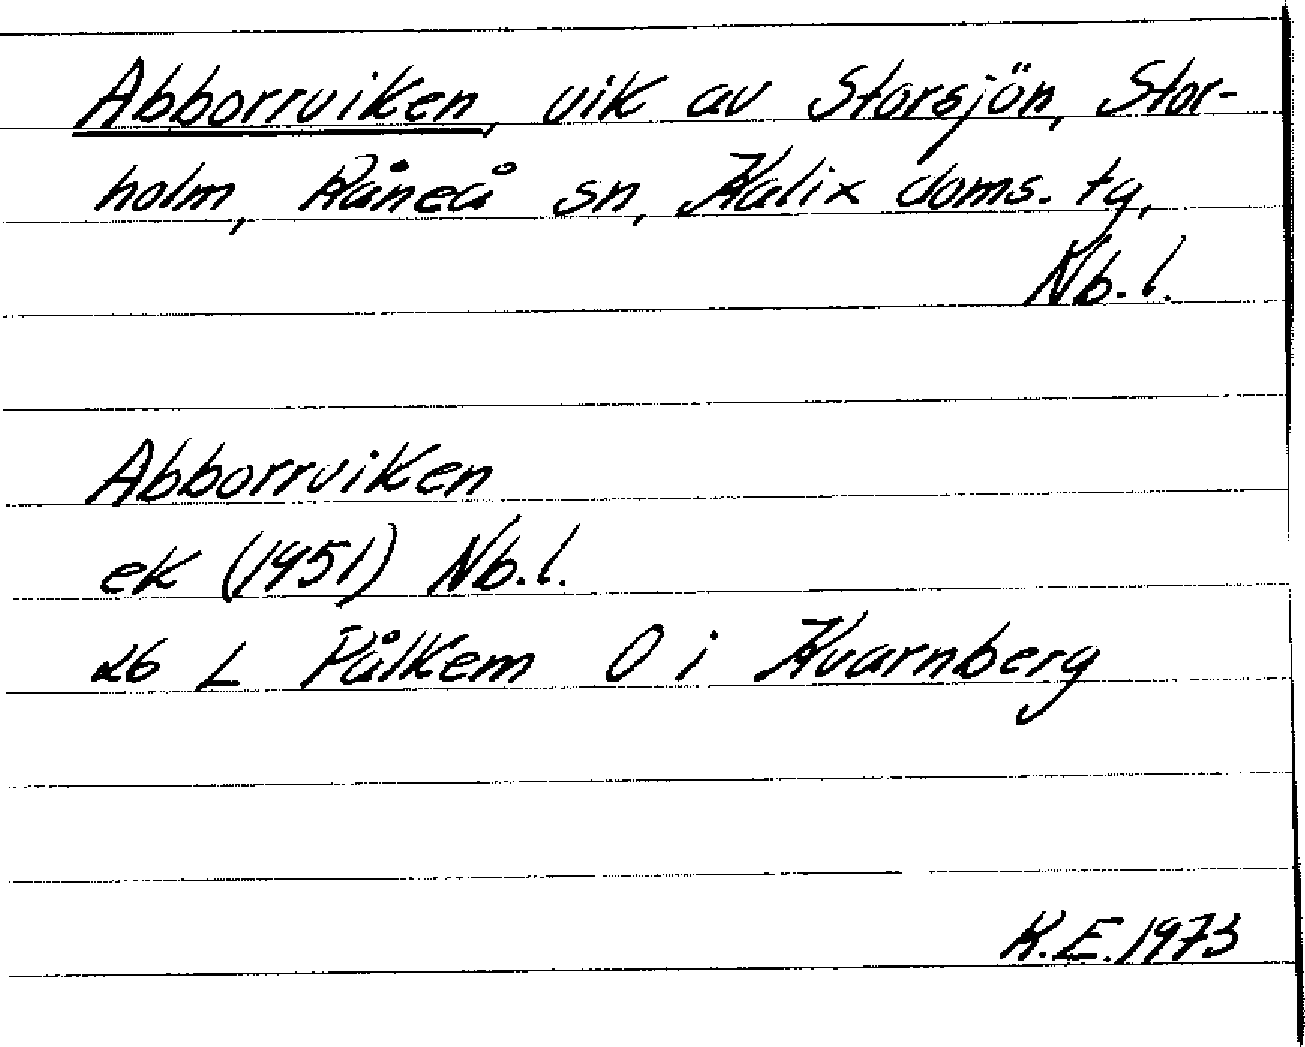 Abborrviken, vik av Storsjön, Stor-
holm, Råneå sn, Kalix doms. tg,
Nb.l.
Abborrviken
ek (1951) Nb.l.
26 L Pålkem O i Kvarnberg
K.E. 1973